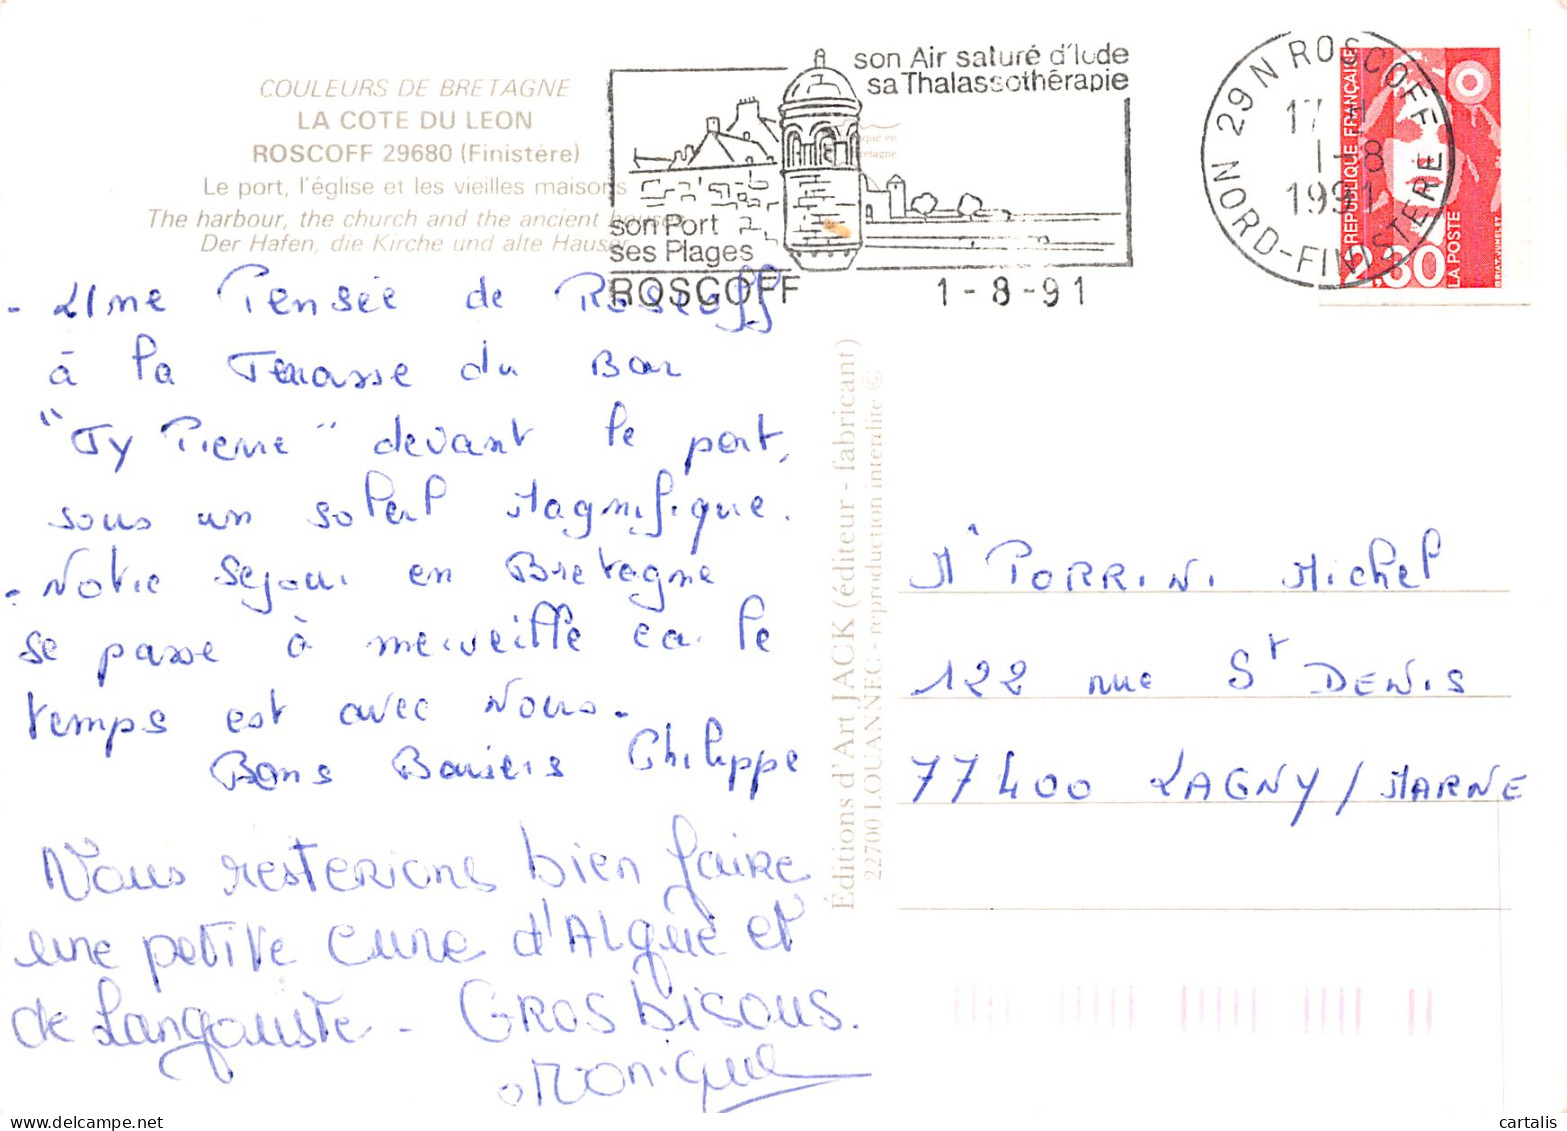 COULEURS DE BRETAGNE
LA COTE DU LEON
ROSCOFF 29680 (Finistère)
Le port, l'église et les vieilles maisons
The harbour, the church and the ancient houses
Der Hafen, die Kirche und alte Häuser
son Air saturé d'Iode
sa Thalassothérapie
son Port
ses Plages
ROSCOFF
1-8-91
29 N ROSCOFF
17 H
1-8
1991
NORD-FINISTERE
REPUBLIQUE FRANÇAISE
2,30
LA POSTE
- Une Pensée de Roscoff
à la Terrasse du Bar
"Ty Pierre" devant le port,
sous un soleil Magnifique.
- Notre sejour en Bretagne
se passe à merveille car le
temps est avec Nous.
Bons Baisers Philippe
Nous resterions bien faire
une petite cure d'Algue et
de Langouste - GROS bisous.
Monique
Éditions d'Art JACK (éditeur - fabricant)
22700 LOUANNEC - reproduction interdite ©
Mr PORRINI Michel
122 rue St DENIS
77400 LAGNY / MARNE
cartalis